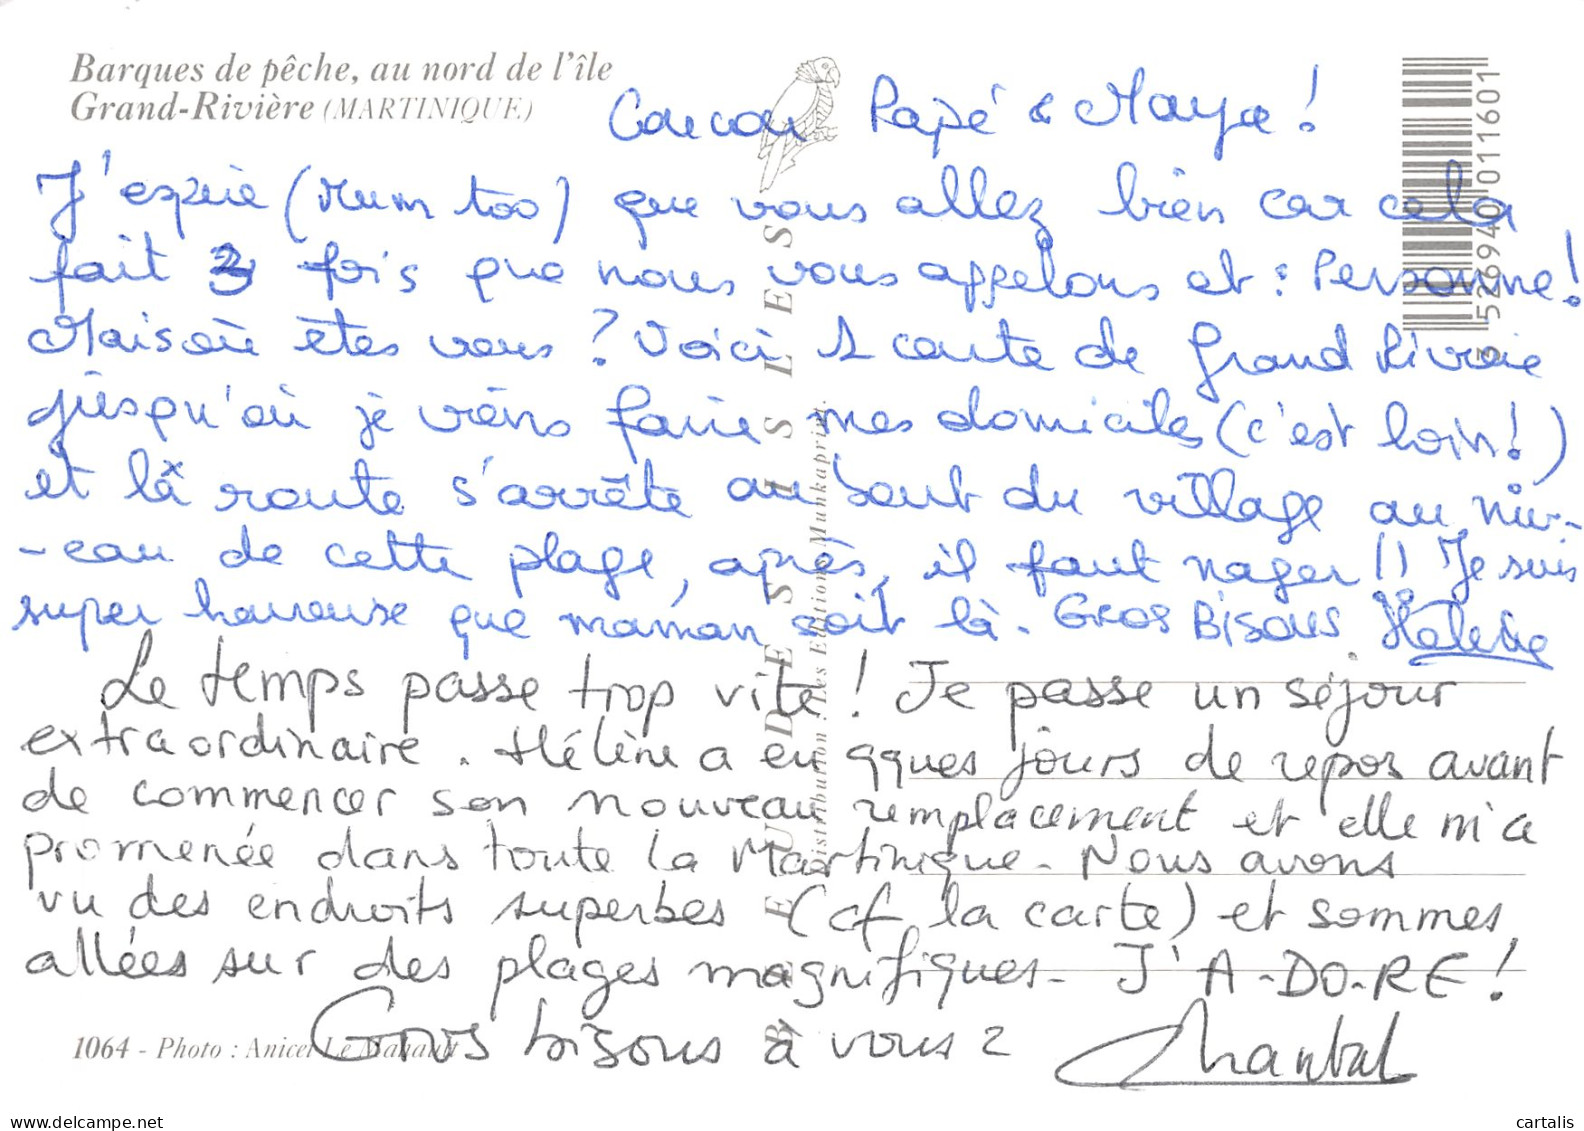 Barques de pêche, au nord de l'île
Grand-Rivière (MARTINIQUE)
Coucou Papé & Maya !
J'espère (Mum too) que vous allez bien car cela
fait 3 fois que nous vous appelons et : Personne !
Mais où êtes vous ? Voici 1 carte de Grand Rivière
jusqu'où je viens faire mes domiciles (c'est loin !)
et là route s'arrête au bout du village au niv-
-eau de cette plage, après, il faut nager !! Je suis
super heureuse que maman soit là. Gros Bisous. Hélène
Le temps passe trop vite ! Je passe un séjour
extraordinaire. Hélène a eu qques jours de repos avant
de commencer son nouveau remplacement et elle m'a
promenée dans toute la Martinique. Nous avons
vu des endroits superbes (cf la carte) et sommes
allées sur des plages magnifiques. J'A-DO-RE !
Gros bisous à vous 2 Chantal
1064 - Photo : Anicet Le
BEAUX DESSINS DES ISLES
Distribution : Les Editions Muhkaprint.
3 526940 011601
cartalis
www.delcampe.net